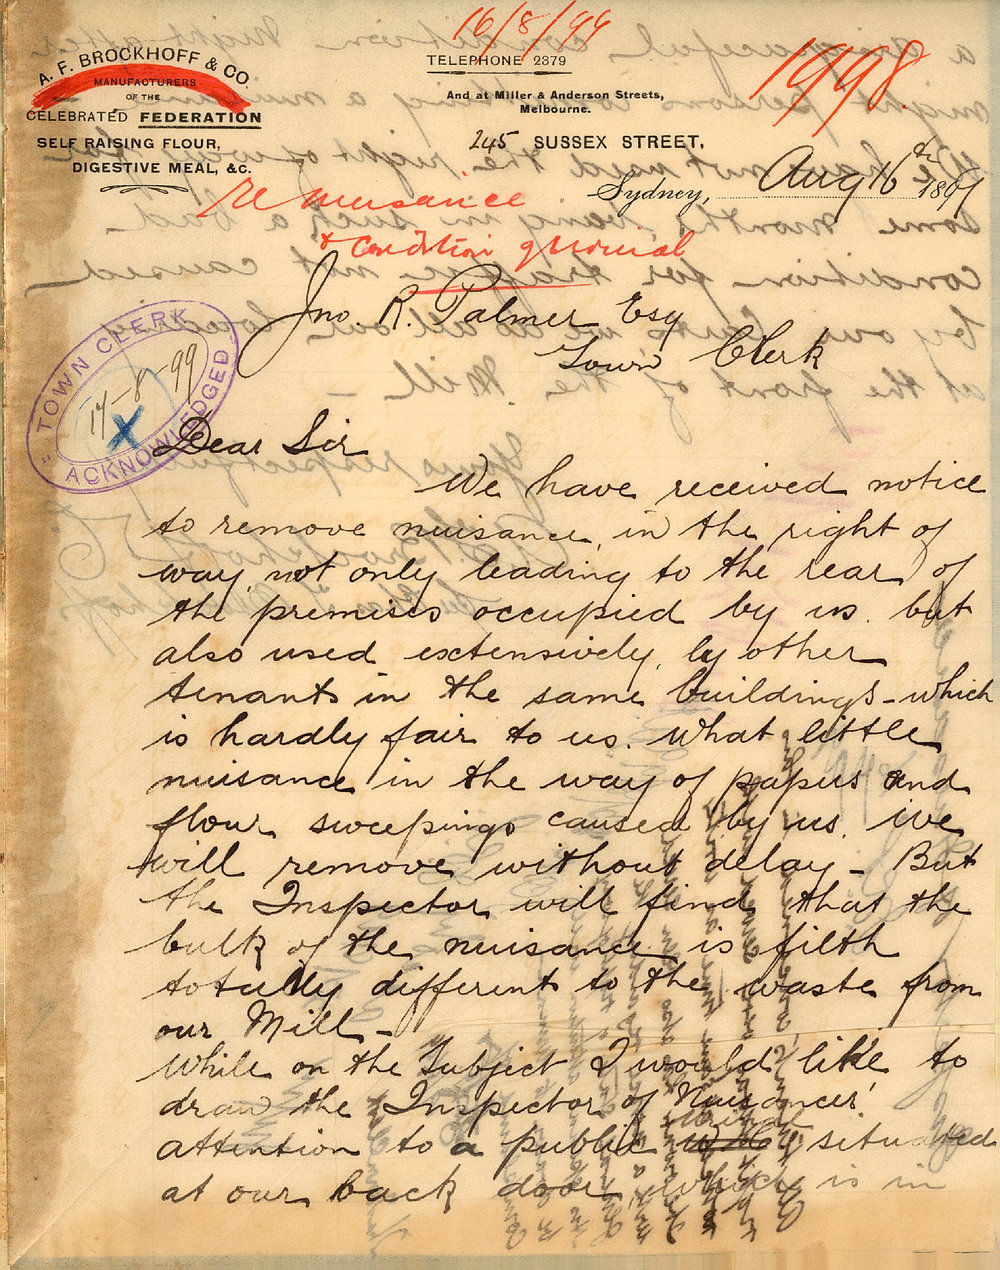 16/8/99
1998.
A. F. BROCKHOFF & CO.
MANUFACTURERS
OF THE
CELEBRATED FEDERATION
SELF RAISING FLOUR,
DIGESTIVE MEAL, &C.
TELEPHONE 2379
And at Miller & Anderson Streets,
Melbourne.
245 SUSSEX STREET,
Sydney, Aug 16th 1899
re nuisance
& condition of urinal
Jno R. Palmer Esq
Town Clerk
TOWN CLERK
17-8-99
X
ACKNOWLEDGED
Dear Sir
We have received notice
to remove nuisance, in the right of
way, not only leading to the rear of
the premises occupied by us. but
also used extensively, by other
tenants in the same buildings - which
is hardly fair to us. what little
nuisance in the way of papers and
flour sweepings caused by us. we
will remove without delay - But
the Inspector will find that the
bulk of the nuisance is filth
totally different to the waste from
our Mill -
While on the Subject I would like to
draw the Inspector of Nuisances'
attention to a public situated
at our back door, which is in